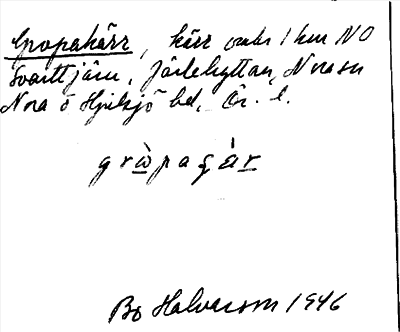 Gropakärr, kärr omkr 1 km NO
Svarttjärn, Järlehyttan, Nora sn
Nora o Hjulsjö bd, Ör. l.
gròpagár
Bo Halvarson 1946